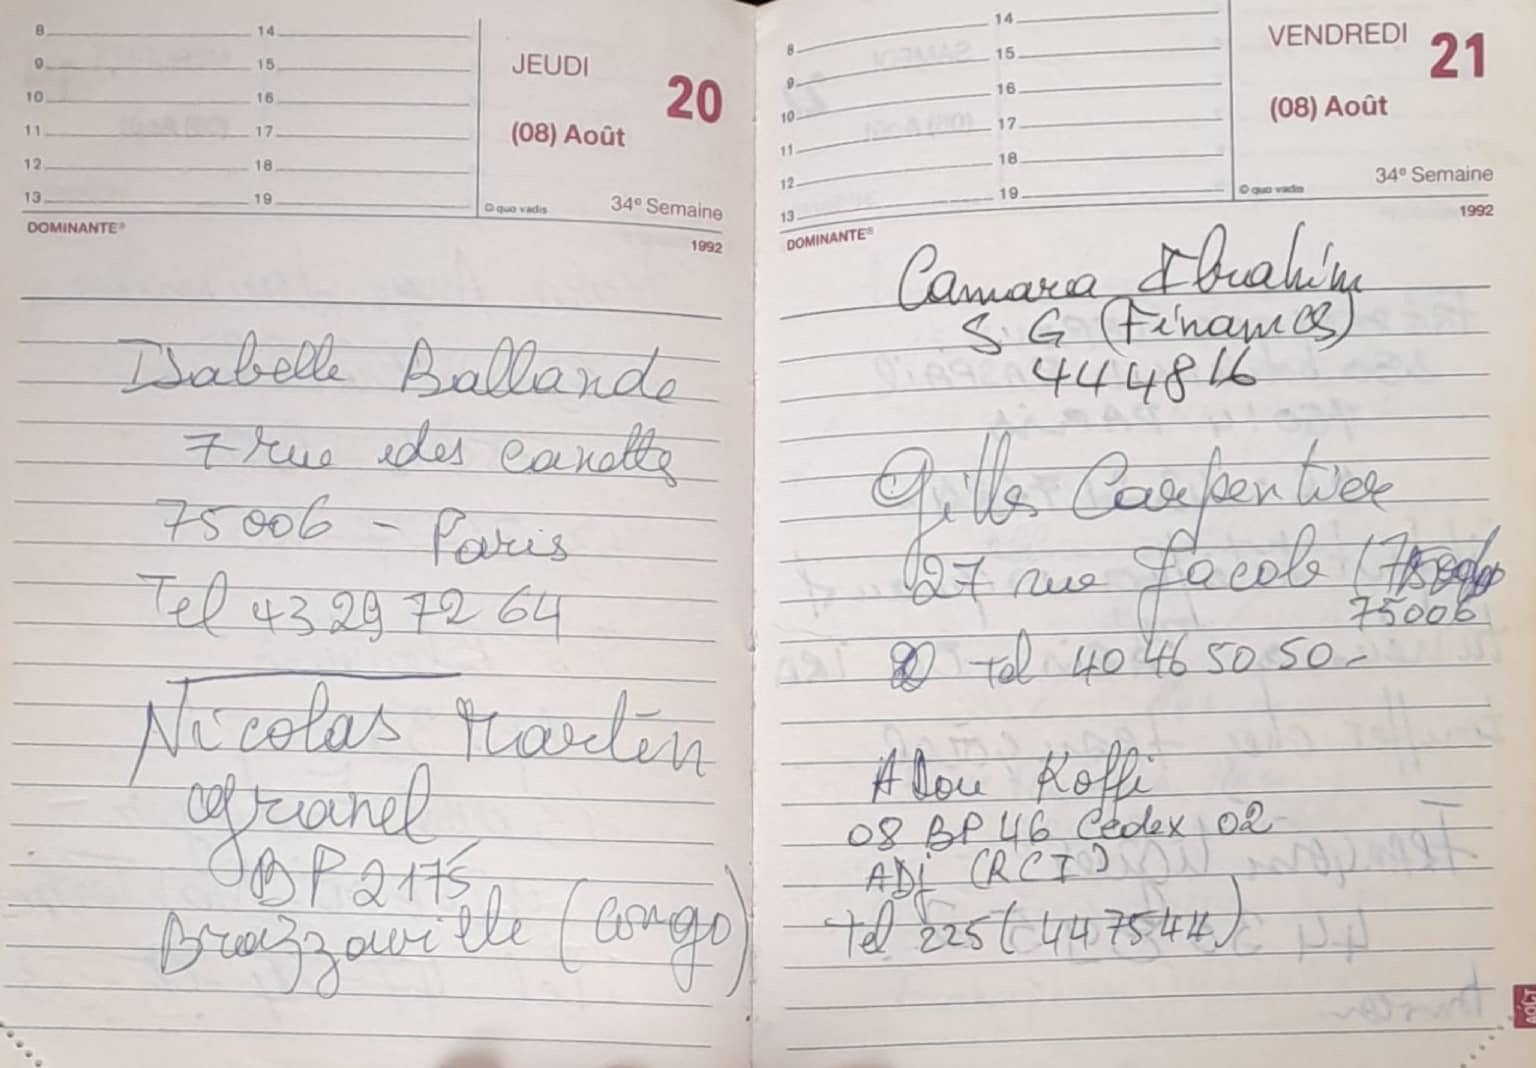 8 14
9 15
10 16
11 17
12 18
13 19
JEUDI
20
(08) Août
© quo vadis
34e Semaine
DOMINANTE®
1992
Isabelle Ballande
7 rue des canettes
75006 - Paris
Tel 43 29 72 64
Nicolas Martin
Granel
BP 2175
Brazzaville (Congo)
8 14
9 15
10 16
11 17
12 18
13 19
VENDREDI
21
(08) Août
© quo vadis
34e Semaine
DOMINANTE®
1992
Camara Ibrahim
S G (Finances)
444816
Gilles Carpentier
27 rue Jacob (
75006
tel 40 46 50 50 -
Adou Koffi
08 BP 46 Cedex 02
ADj (RCI)
Tel 225 (447544)
AOÛT